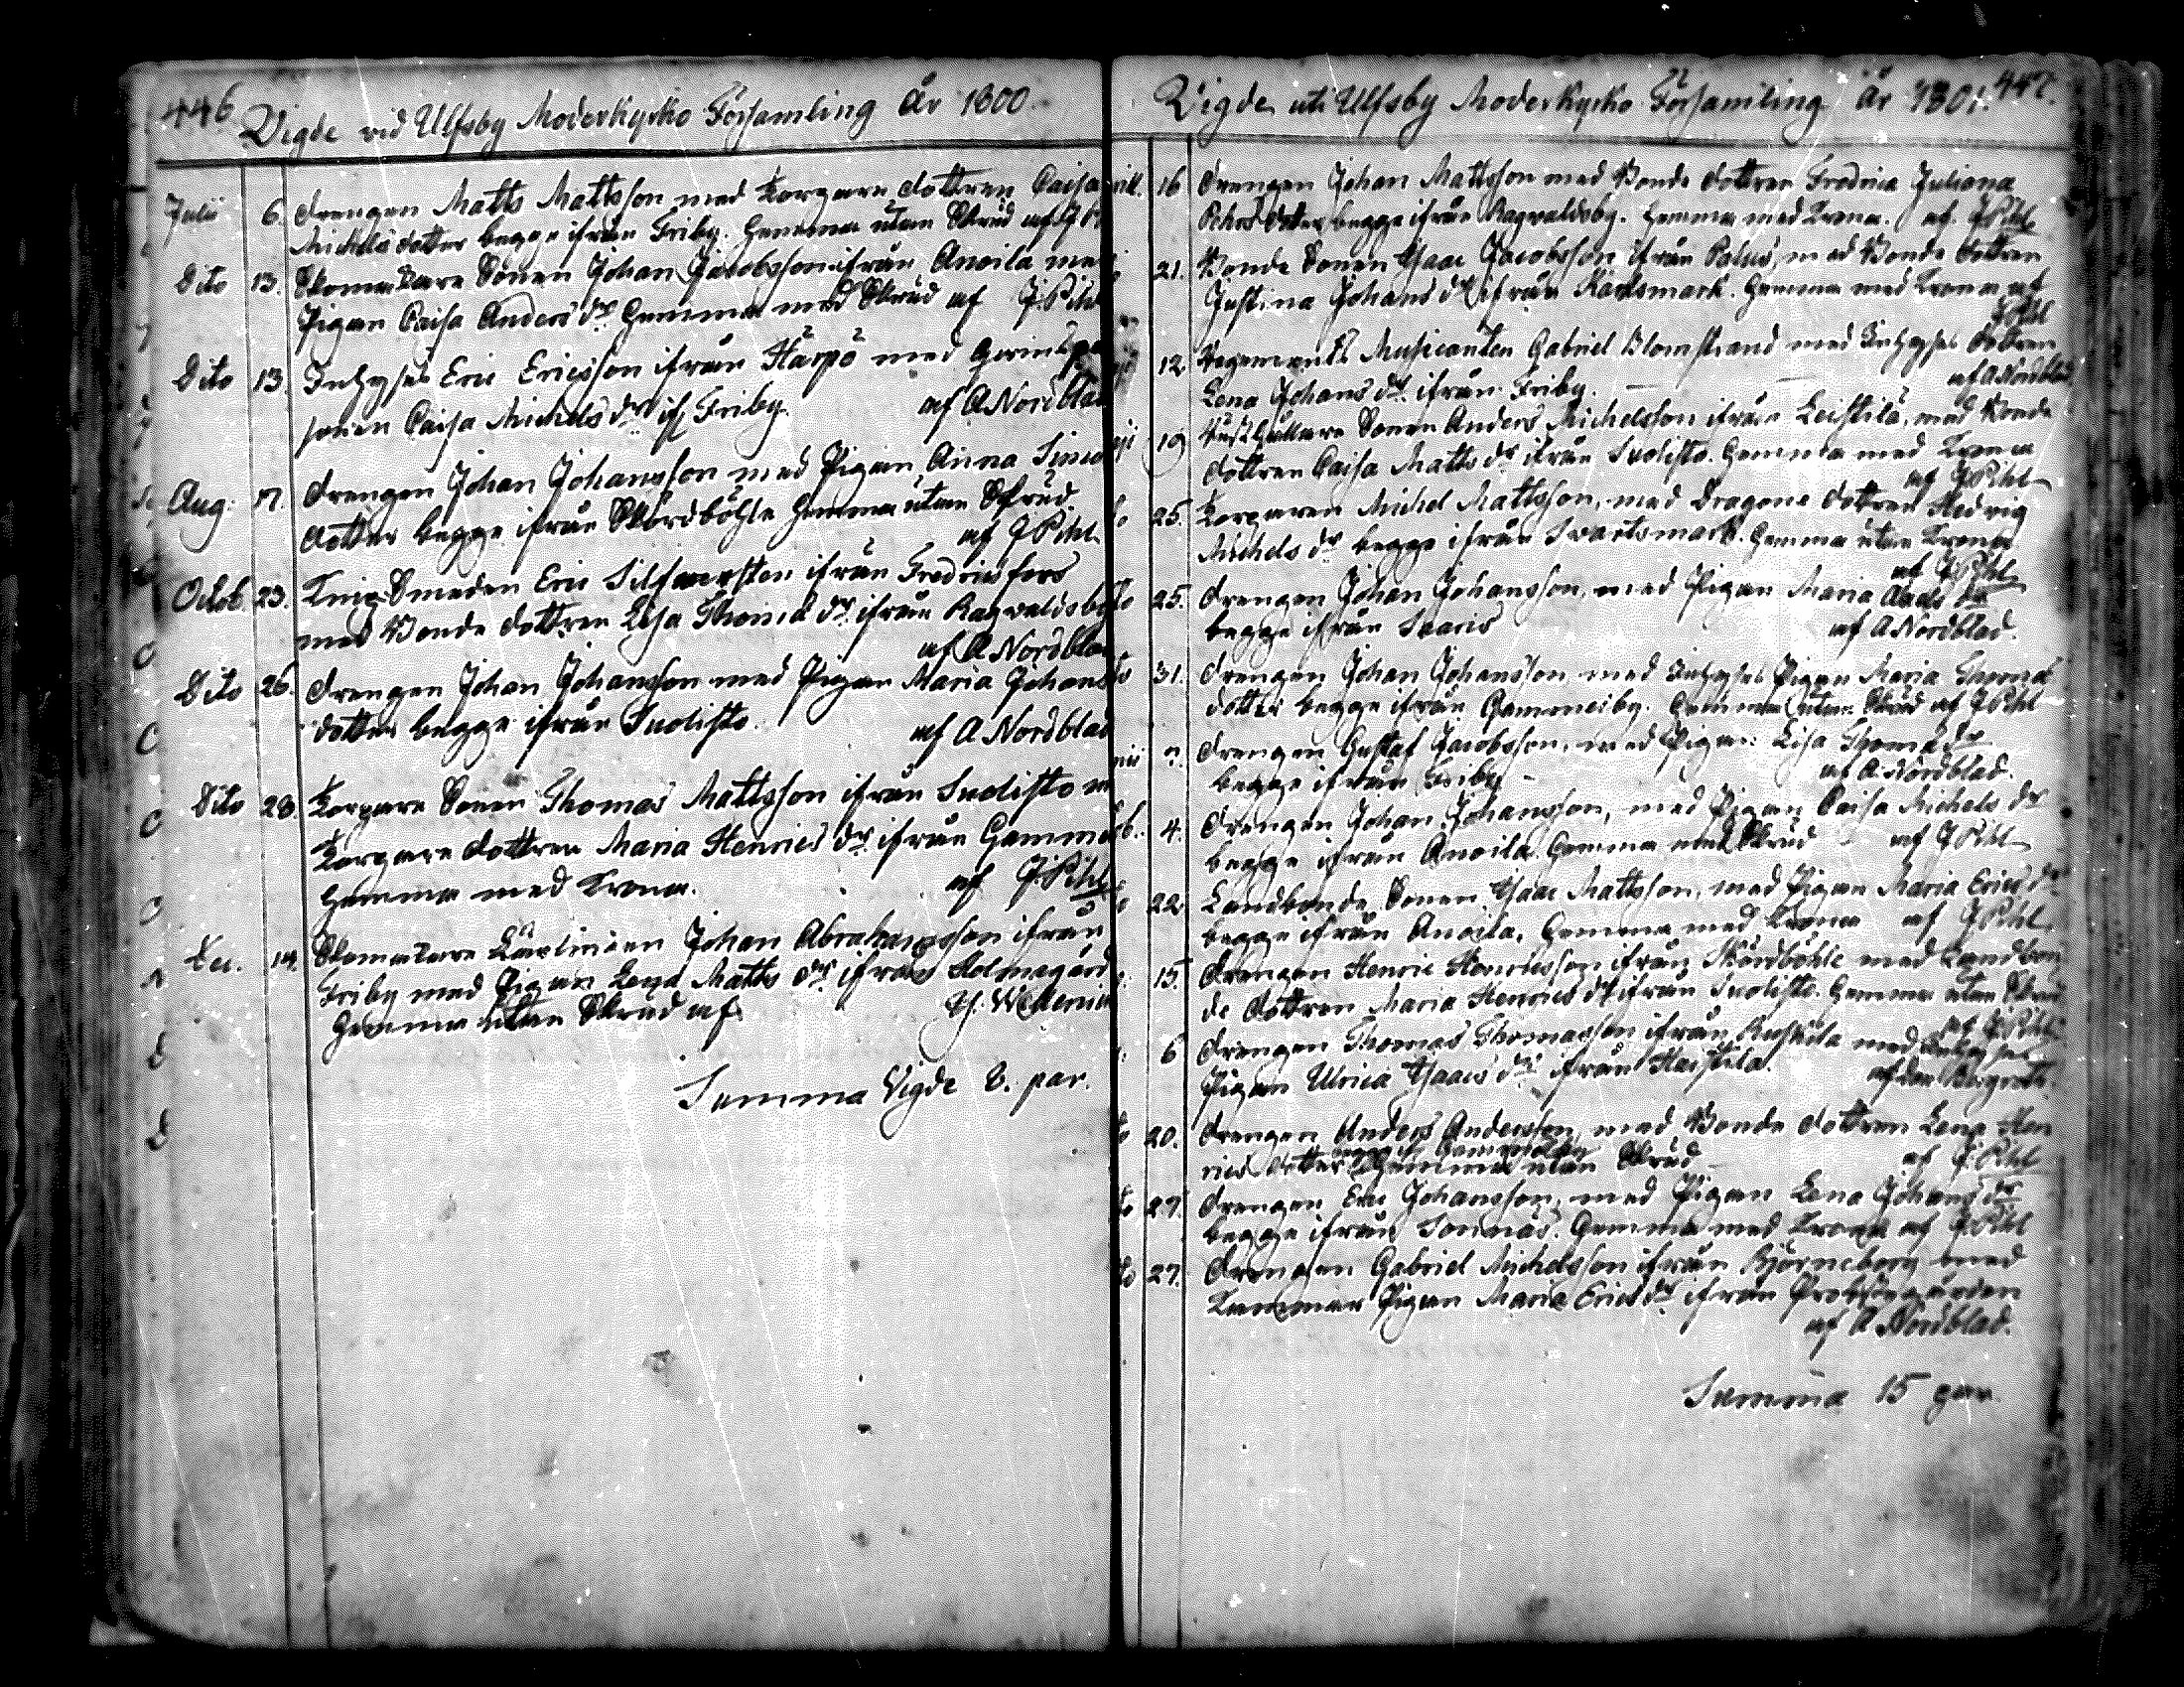 446
Vigde vid Ulfsby Moderkyrko Församling År 1800.
Julii 6. Drengen Matts Mattsson med Torpare dottren Caisa
Michels dotter begge ifrån Friby. Hemma utan Skrud af J P
Dito 13. Skomakare Sonen Johan Jacobsson ifrån Anoila me
Pigan Caisa Anders dr Hemma med Skrud af J. Pihl
Dito 13. Inhyses Eric Ericsson ifrån Härpö med Qvins per
sonen Caisa Michels dr if Friby. af A Nordblad
Aug: 17. Drengen Johan Johansson med Pigan Anna Simo
dotter begge ifrån Skördböhle Hemma utan Skrud
af J Pihl
Octob. 23. Knip Smeden Eric Silfwersten ifrån Fredricsfors
med Bonde dottren Lisa Thomæ dr ifrån Ragvaldsby
af A Nordblad
Dito 26. Drengen Johan Johansson med Pigan Maria Johans
dotter begge ifrån Suolisto. af A Nordblad
Dito 28. Torpare Sonen Thomas Mattsson ifrån Suolisto m
Torpare dottren Maria Henrics dr ifrån Gamme
Hemma med Krona. af J. Pihl
Dec. 14. Skomakare Lärlingen Johan Abrahamsson ifrån
Friby med Pigan Lena Matts dr ifrån Holmagård
Hemma utan Skrud af
Summa Vigde 8. par.
447.
Vigde uti Ulfsby Moderkyrko Församling År 1801.
rill. 16 Drengen Johan Mattsson med Bonde dottren Fredrica Juliana
dotter begge ifrån Ragvaldsby. Hemma med Krona. af J Pihl
21. Bonde Sonen Isaac Jacobsson ifrån Palus, med Bonde dottren
Justina Johans dr ifrån Karlsmark. Hemma med Krona af
J Pihl
12 Regements Musicanten Gabriel Blomstrand med Inhyses dottren
Lena Johans dr ifrån Friby. af A Nordblad
19 Rusthållare Sonen Anders Michelsson ifrån Leistilä, med Bonde
dottren Caisa Matts dr ifrån Suolisto. Hemma med Krona
af J Pihl
25. Torparen Michel Mattsson, med Dragone dottren Hedvig
Michels dr begge ifrån Svartsmark. Hemma utan Krona
af J Pihl
25. Drengen Johan Johansson, med Pigan Maria dr
begge ifrån Saaris af A Nordblad.
31. Drengen Johan Johansson med Inhyses Pigan Maria Thomæ
dotter begge ifrån Gammelby. Hemma utan Skrud af J Pihl
7. Drengen Gustaf Jacobsson, med Pigan Lisa Thomæ dr
begge ifrån Friby af A Nordblad.
4. Drengen Johan Johansson, med Pigan Caisa Michels dr
begge ifrån Anoila. Hemma med Skrud af J Pihl
22 Landbonde Sonen Isaac Mattsson, med Pigan Maria Erics dr
begge ifrån Anoila. Hemma med Krona af J Pihl.
15. Drengen Henric Henricsson ifrån Skördböhle med Landbon
de dottren Maria Henrics dr ifrån Suolisto. Hemma utan Skrud
af J Pihl
6 Drengen Thomas Thomasson ifrån Ruskila med Inhyses
Pigan Ulrica Isaacs dr ifrån Haistila.
20. Drengen Anders Andersson, med Bonde dottren Lena Hen
rics dotter Hemma utan Skrud af J. Pihl
27. Drengen Eric Johansson, med Pigan Lena Johans dr
begge ifrån Sonnäs. Hemma med Krona af J. Pihl
27. Drengen Gabriel Michelsson ifrån Björneborg med
Kammar Pigan Maria Erics dr ifrån Probstegården
af A Nordblad.
Summa 15 par.